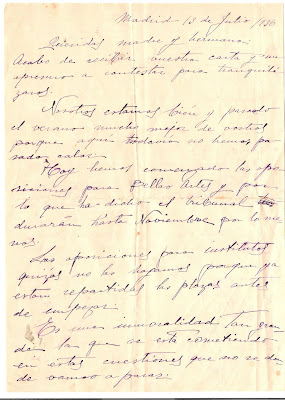 Madrid 13 de Julio/936
Queridas madre y hermana:
Acabo de recibir vuestra carta y me
apresuro a contestar para tranquili
zaros.
Nosotros estamos bién y pasando
el verano mucho mejor de
porque aqui todavia no hemos pa
sado calor.
Hoy hemos comenzado las opo
siciones para Bellas Artes y por
lo que ha dicho el tribunal
durarán hasta Noviembre por lo me
nos.
Las oposiciones para institutos
quizas no las hagamos porque ya
estan repartidas las plazas antes
de empezar.
Es una inmoralidad tan gran
de la que se esta cometiendo
en estas cuestiones que no se don
de vamos a parar.